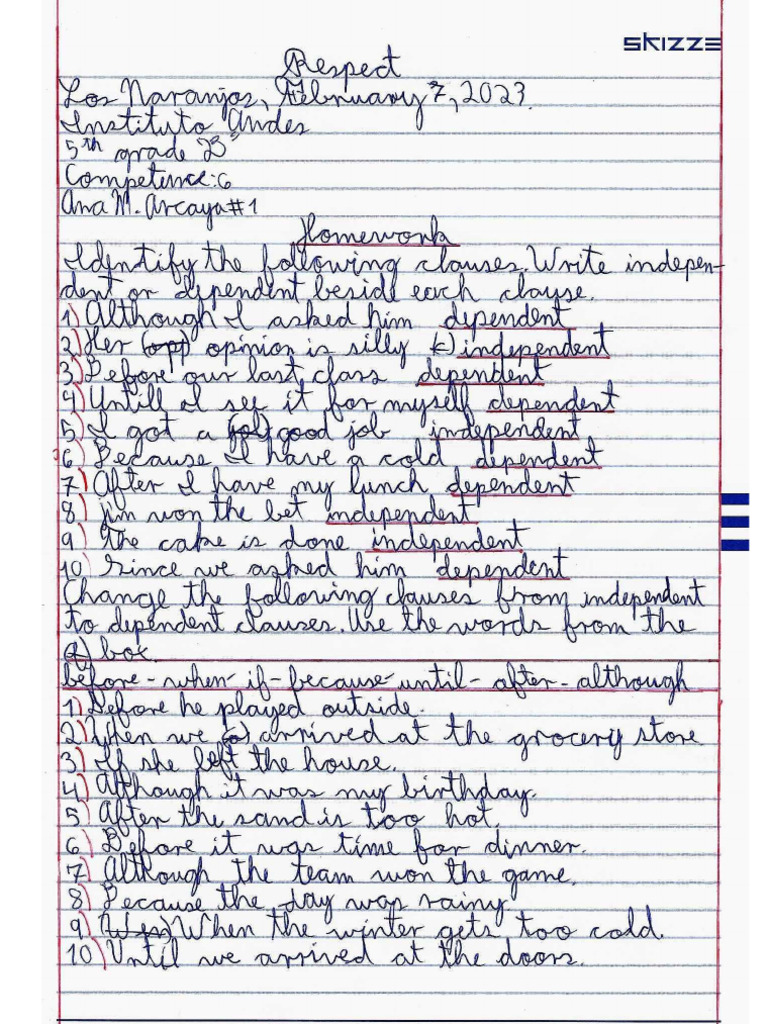 SKIZZE
Respect
Los Naranjos, February 7, 2023.
Instituto Andes
5th grade "B"
Competence: 6
Ana M. Arcaya #1
Homework
Identify the following clauses. Write indepen-
dent or dependent beside each clause.
1) Although I asked him dependent
2) Her (opp) opinion is silly independent
3) Before our last class dependent
4) Untill I see it for myself dependent
5) I got a (jol) good job independent
6) Because I have a cold dependent
7) After I have my lunch dependent
8) Jim won the bet independent
9) The cake is done independent
10) Since we asked him dependent
Change the following clauses from independent
to dependent clauses. Use the words from the
box.
before - when - if - because - until - after - although
1) Before he played outside.
2) When we (a) arrived at the grocery store
3) If she left the house.
4) Although it was my birthday.
5) After the sand is too hot.
6) Before it was time for dinner.
7) Although the team won the game.
8) Because the day was rainy
9) When the winter gets too cold.
10) Until we arrived at the doors.